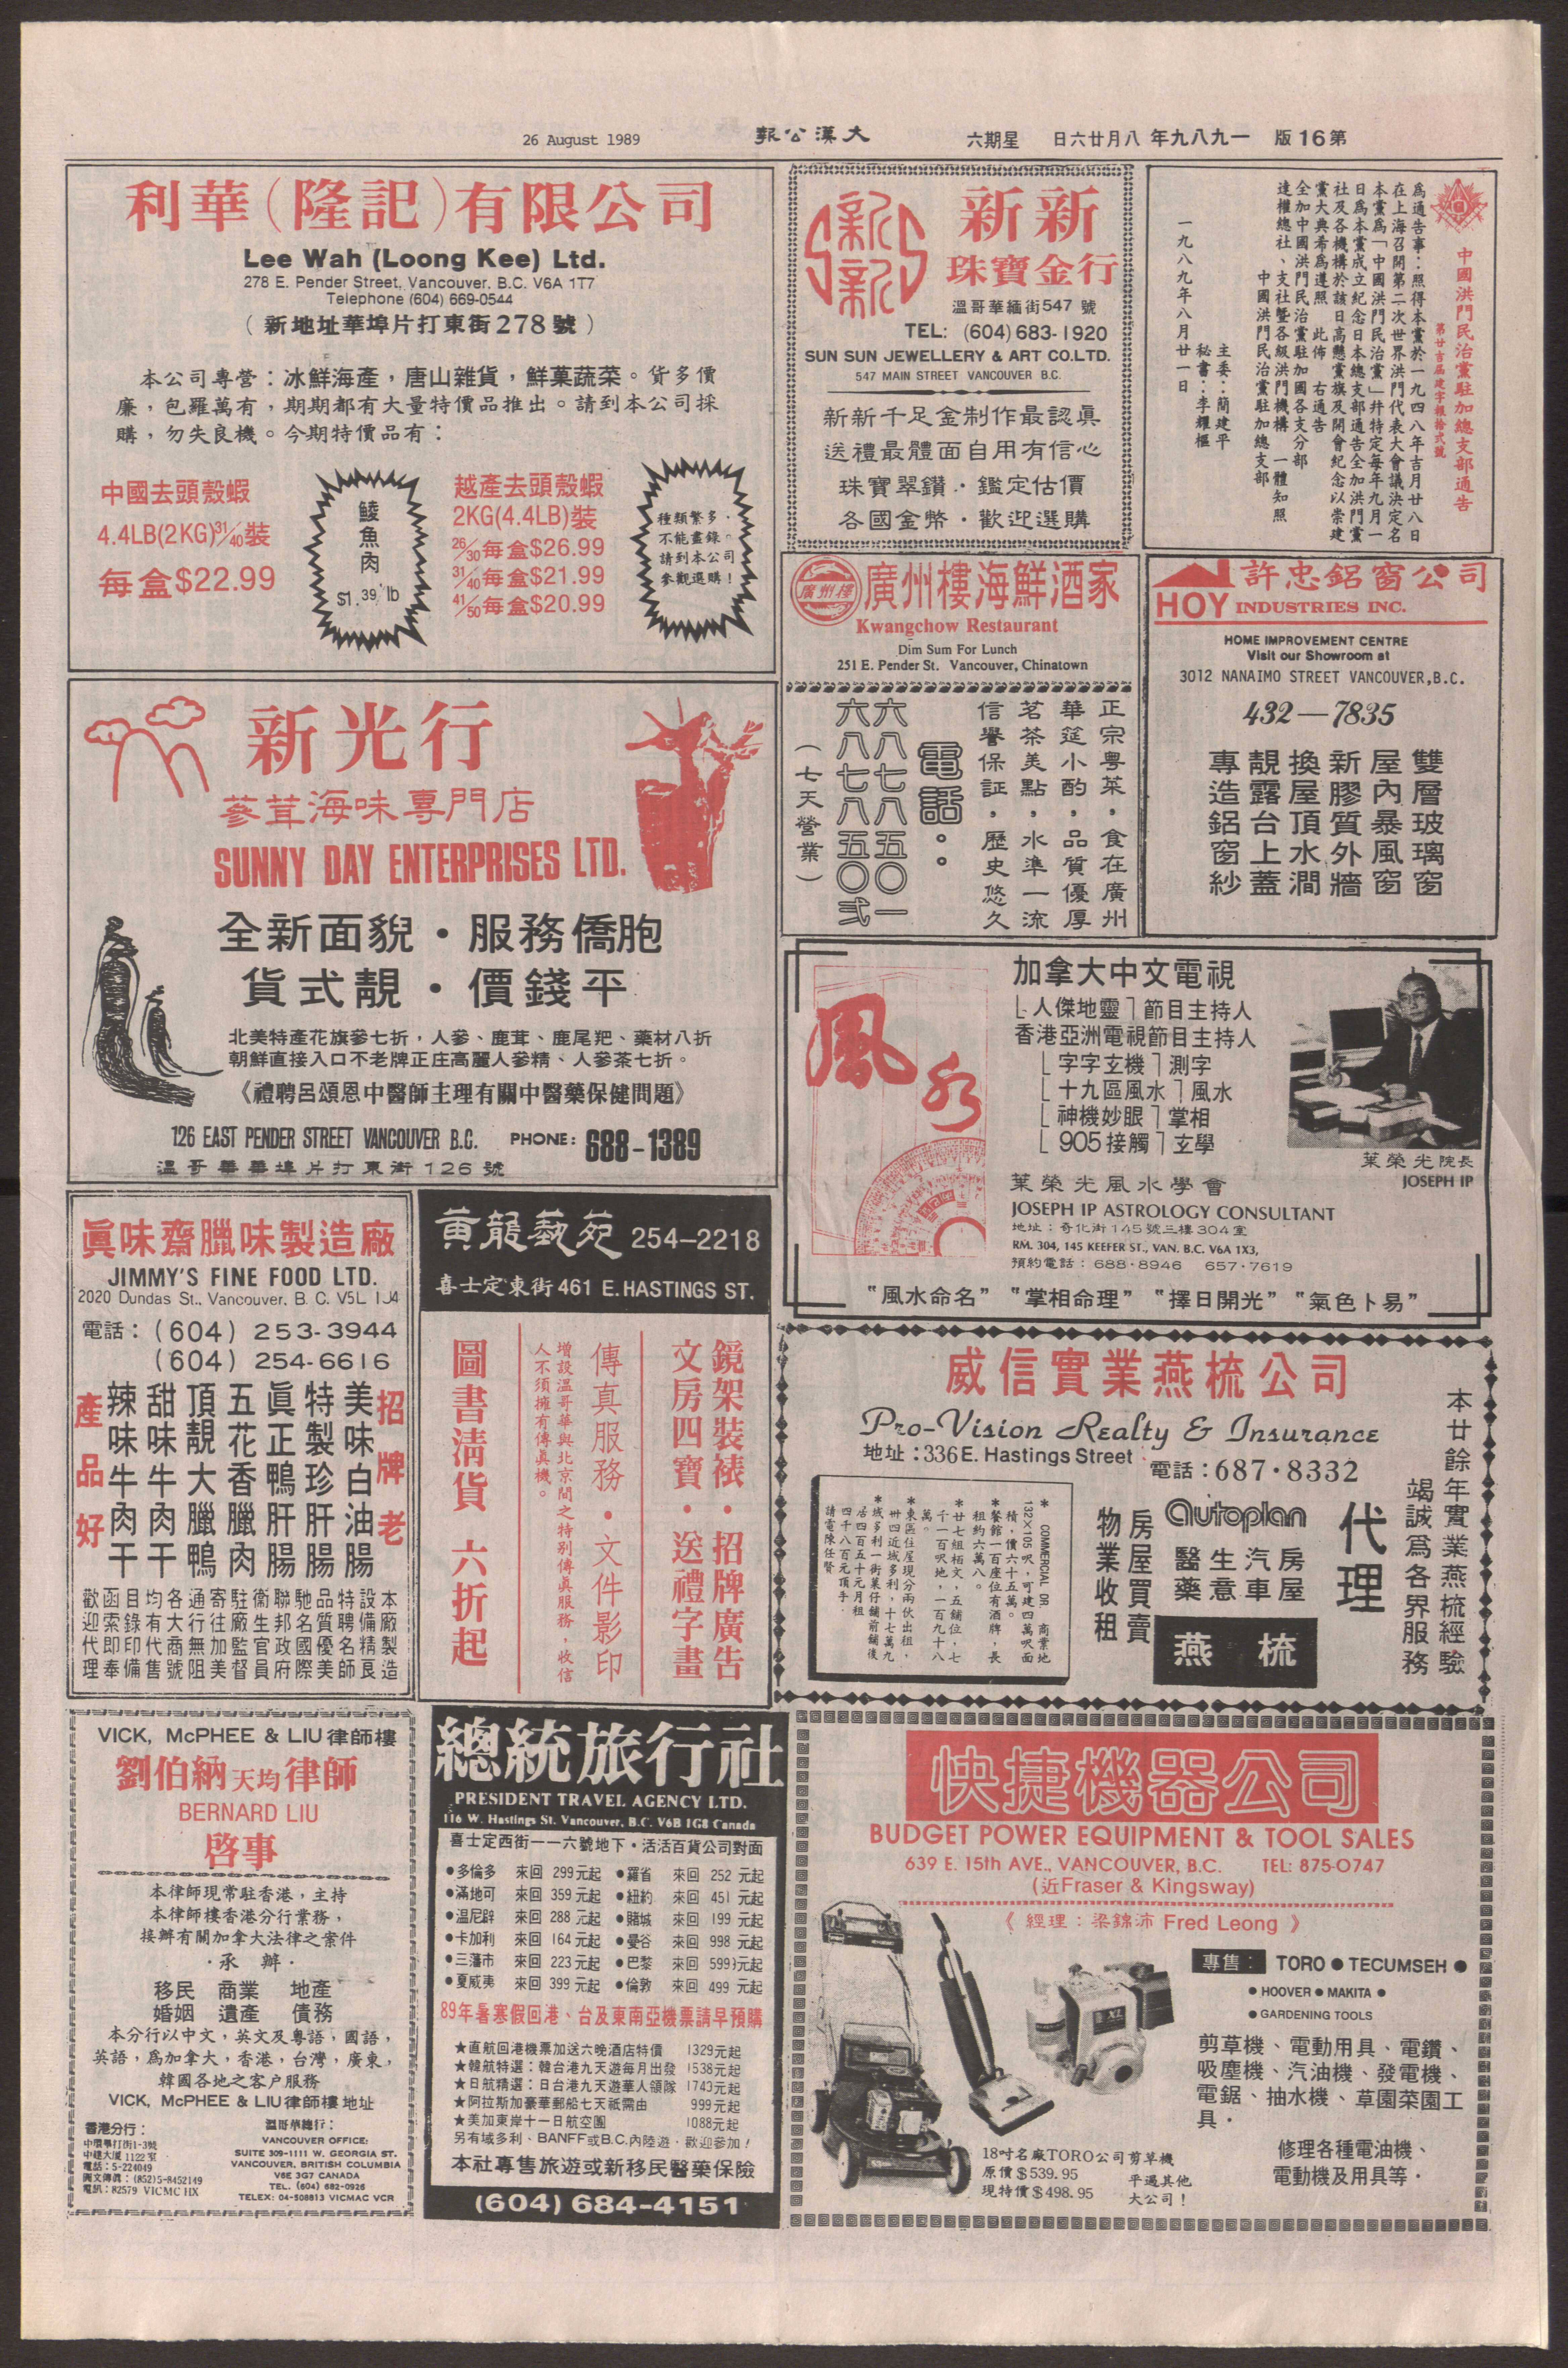 26 August 1989
報公漢大
六期星 日六廿月八年九八九一 版16第
利華(隆記)有限公司
Lee Wah (Loong Kee) Ltd.
278 E. Pender Street, Vancouver. B.C. V6A 1T7
Telephone (604) 669-0544
(新地址華埠片打東街278號)
本公司專營：冰鮮海產，唐山雜貨，鮮菓蔬菜。貨多價
廉，包羅萬有，期期都有大量特價品推出。請到本公司採
購，勿失良機。今期特價品有：
中國去頭殼蝦
4.4LB(2KG)31/40裝
每盒$22.99
鯪魚肉
$1.39/lb
越產去頭殼蝦
2KG(4.4LB)裝
26/30每盒$26.99
31/40每盒$21.99
41/50每盒$20.99
種類繁多，
不能盡錄。
請到本公司
參觀選購！
新新
珠寶金行
溫哥華緬街547 號
TEL: (604) 683-1920
SUN SUN JEWELLERY & ART CO.LTD.
547 MAIN STREET VANCOUVER B.C.
新新千足金制作最認真
送禮最體面自用有信心
珠寶翠鑽・鑑定估價
各國金幣・歡迎選購
中國洪門民治黨駐加總支部通告
為通告事：照得本黨於一九四八年吉月廿八日
在上海召開第二次世界洪門代表大會議決定名
本黨為「中國洪門民治黨」幷特定每年九月一
日為本黨成立紀念日本總支部通告全加洪門黨
社及各機構於該日高懸黨旗及開會紀念以崇建
黨大典希為遵照 此佈 右通告
全加中國洪門民治黨駐加國各支分部
達權總社、支社暨各級洪門機構 一體知照
中國洪門民治黨駐加總支部
主委：簡建平
秘書：李耀樞
一九八九年八月廿一日
新光行
蔘茸海味專門店
SUNNY DAY ENTERPRISES LTD.
全新面貌・服務僑胞
貨式靚・價錢平
北美特產花旗參七折，人參、鹿茸、鹿尾羓、藥材八折
朝鮮直接入口不老牌正庄高麗人參精、人參茶七折。
《禮聘呂頌恩中醫師主理有關中醫藥保健問題》
126 EAST PENDER STREET VANCOUVER B.C. PHONE: 688-1389
溫哥華華埠片打東街126號
廣州樓海鮮酒家
廣州樓
Kwangchow Restaurant
Dim Sum For Lunch
251 E. Pender St. Vancouver, Chinatown
正宗粵菜，食在廣州
華筵小酌，品質優厚
茗茶美點，水準一流
信譽保証，歷史悠久
電話：
六八七八五〇一
六八七八五〇弍
(七天營業)
許忠鋁窗公司
HOY INDUSTRIES INC.
HOME IMPROVEMENT CENTRE
Visit our Showroom at
3012 NANAIMO STREET VANCOUVER,B.C.
432—7835
雙層玻璃窗
屋內暴風窗
新膠質外牆
換屋頂水澗
靚露台上蓋
專造鋁窗紗
風水
加拿大中文電視
「人傑地靈」節目主持人
香港亞洲電視節目主持人
「字字玄機」測字
「十九區風水」風水
「神機妙眼」掌相
「905接觸」玄學
葉榮光院長
JOSEPH IP
葉榮光風水學會
JOSEPH IP ASTROLOGY CONSULTANT
地址：奇化街145號三樓304室
RM. 304, 145 KEEFER ST., VAN. B.C. V6A 1X3,
預約電話：688・8946 657・7619
“風水命名” “掌相命理” “擇日開光” “氣色卜易”
眞味齋臘味製造廠
JIMMY'S FINE FOOD LTD.
2020 Dundas St.. Vancouver. B. C. V5L 1J4
電話：(604) 253-3944
(604) 254-6616
招牌老
美味白油腸
特製珍肝腸
眞正鴨肝腸
五花香臘肉
頂靚大臘鴨
甜味牛肉干
辣味牛肉干
產品好
本廠製造
設備精良
特聘名師
品質優美
馳名國際
聯邦政府
衞生官員
駐廠監督
寄往加美
通行無阻
各大商號
均有代售
目錄印備
函索即奉
歡迎代理
黄龍藝苑 254-2218
喜士定東街461 E.HASTINGS ST.
鏡架裝裱・招牌廣告
文房四寶・送禮字畫
傳真服務・文件影印
增設溫哥華與北京間之特别傳眞服務，收信
人不須擁有傳眞機。
圖書清貨 六折起
威信實業燕梳公司
Pro-Vision Realty & Insurance
地址：336E. Hastings Street
電話：687・8332
本廿餘年實業燕梳經驗
竭誠爲各界服務
代理
autoplan
房屋
汽車
生意
醫藥
燕梳
房屋買賣
物業收租
* COMMERCIAL OR 商業地
132×105呎，可建四萬呎面
積，價六十五萬。
*餐館一百座位有酒牌，長
租約六萬八。
*廿七組栢文，五舖位，七
千一百呎地，一百九十八
萬。
*東區住屋現分兩伙出租，
卅四近域多利，十七萬九
*域多利一街菓仔舖前舖後
居四百五十元月租
四千八百元頂手。
請電陳任賢
VICK, McPHEE & LIU律師樓
劉伯納天均律師
BERNARD LIU
啓事
本律師現常駐香港，主持
本律師樓香港分行業務，
接辦有關加拿大法律之案件
・承 辦・
移民 商業 地產
婚姻 遺產 債務
本分行以中文，英文及粵語，國語，
英語，爲加拿大，香港，台灣，廣東，
韓國各地之客户服務
VICK, McPHEE & LIU律師樓地址
香港分行：
中環畢打街1-3號
中建大厦 1122室
電話：5-224049
圖文傳真：(852)5-8452149
電訊：82579 VICMC HX
溫哥華總行：
VANCOUVER OFFICE:
SUITE 309-1111 W. GEORGIA ST.
VANCOUVER, BRITISH COLUMBIA
V6E 3G7 CANADA
TEL. (604) 682-0925
TELEX: 04-508813 VICMAC VCR
總統旅行社
PRESIDENT TRAVEL AGENCY LTD.
116 W. Hastings St. Vancouver, B.C. V6B 1G8 Canada
喜士定西街一一六號地下・活活百貨公司對面
●多倫多 來回 299元起 ●羅省 來回 252元起
●滿地可 來回 359元起 ●紐約 來回 451元起
●温尼辟 來回 288元起 ●賭城 來回 199元起
●卡加利 來回 164元起 ●曼谷 來回 998元起
●三藩市 來回 223元起 ●巴黎 來回 599元起
●夏威夷 來回 399元起 ●倫敦 來回 499元起
89年暑寒假回港、台及東南亞機票請早預購
★直航回港機票加送六晚酒店特價 1329元起
★韓航特選：韓台港九天遊每月出發 1538元起
★日航精選：日台港九天遊華人領隊 1743元起
★阿拉斯加豪華郵船七天祇需由 999元起
★美加東岸十一日航空團 1088元起
另有域多利、BANFF或B.C.內陸遊，歡迎參加！
本社專售旅遊或新移民醫藥保險
(604) 684-4151
快捷機器公司
BUDGET POWER EQUIPMENT & TOOL SALES
639 E. 15th AVE., VANCOUVER, B.C. TEL: 875-0747
(近Fraser & Kingsway)
《 經理：梁錦沛 Fred Leong 》
專售： TORO ● TECUMSEH ●
● HOOVER ● MAKITA ●
● GARDENING TOOLS
剪草機、電動用具、電鑽、
吸塵機、汽油機、發電機、
電鋸、抽水機、草園菜園工
具・
修理各種電油機、
電動機及用具等・
18吋名廠TORO公司剪草機
原價＄539.95
現特價＄498.95
平過其他
大公司！